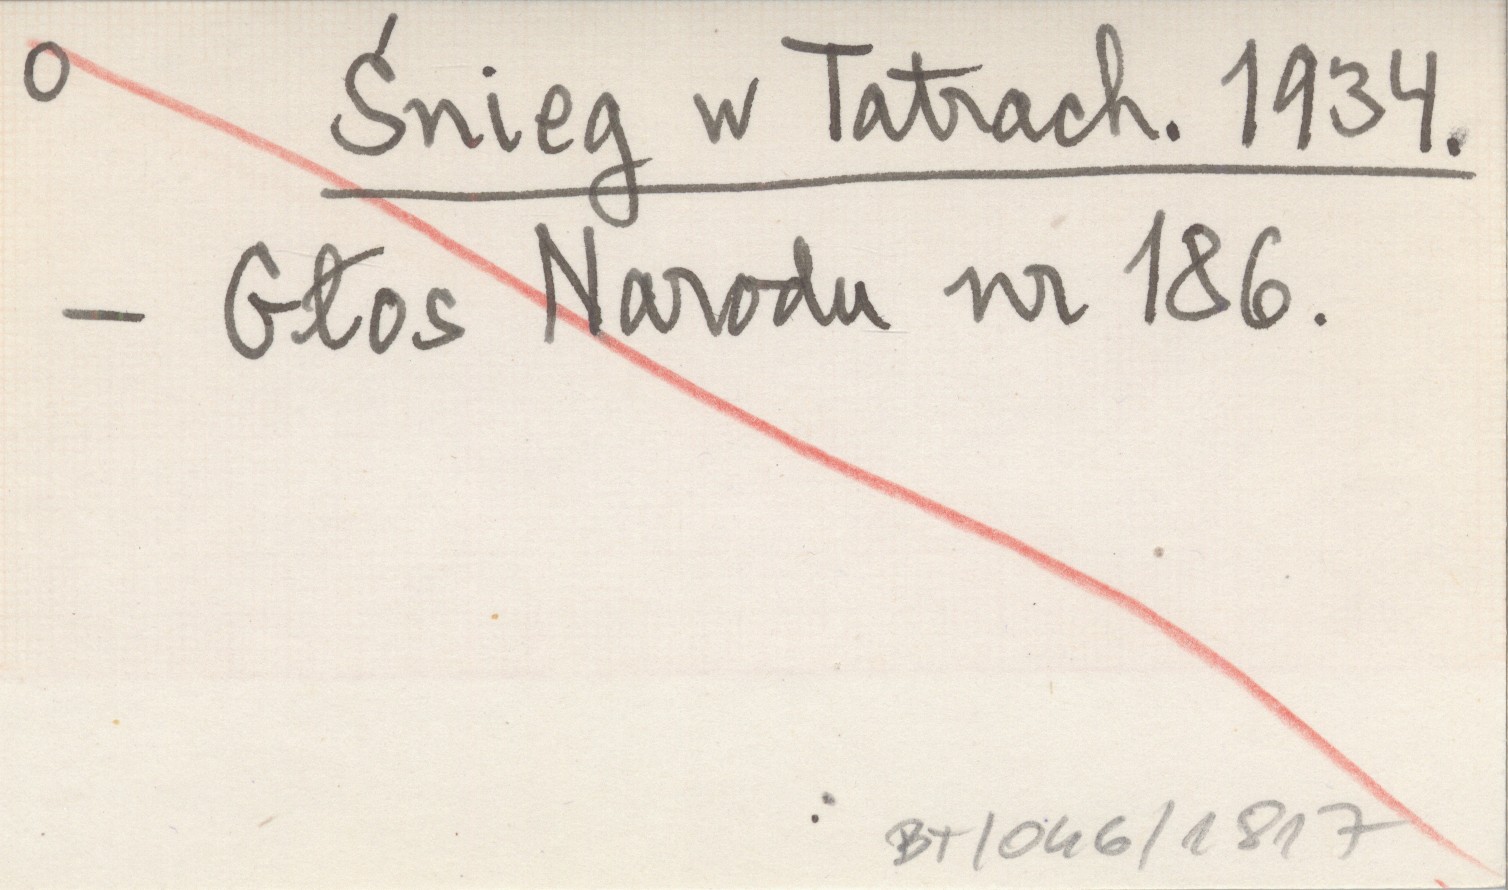 O Śnieg w Tatrach. 1934.
— Głos Narodu nr 186.
BT/046/1817